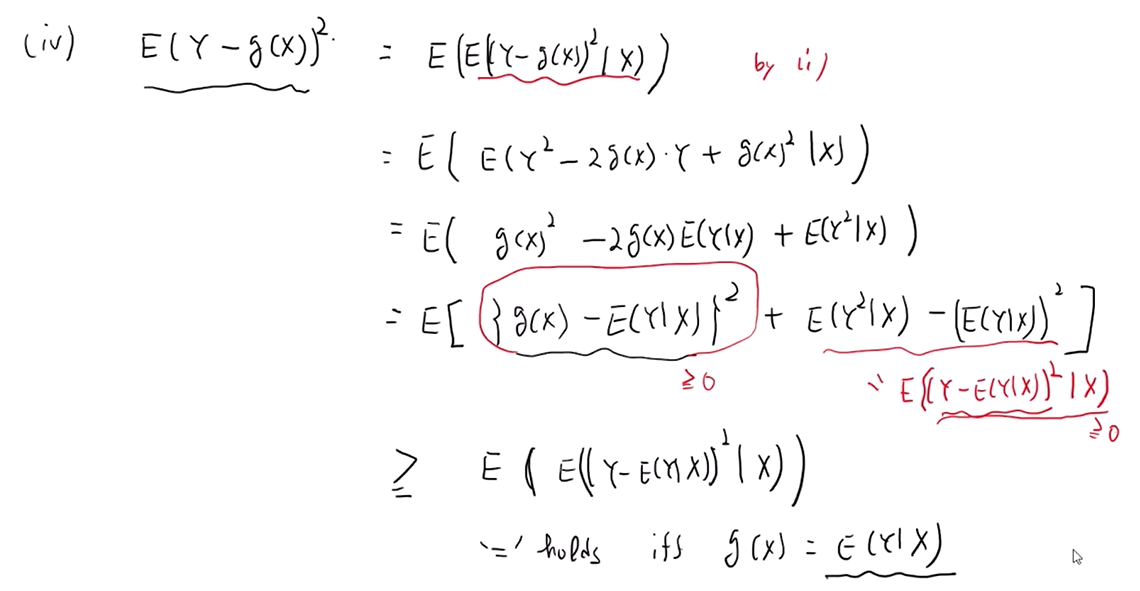 (iv) E(Y - g(X))². = E(E((Y-g(X))²|X)) by ii)
= E( E(Y² - 2g(X)·Y + g(X)² |X) )
= E( g(X)² - 2g(X)E(Y|X) + E(Y²|X) )
= E[ {g(X) - E(Y|X)}² + E(Y²|X) - (E(Y|X))² ]
≧0 " E((Y-E(Y|X))²|X)
≧0
≧ E( E((Y-E(Y|X))²|X) )
'=' holds iff g(X) = E(Y|X)